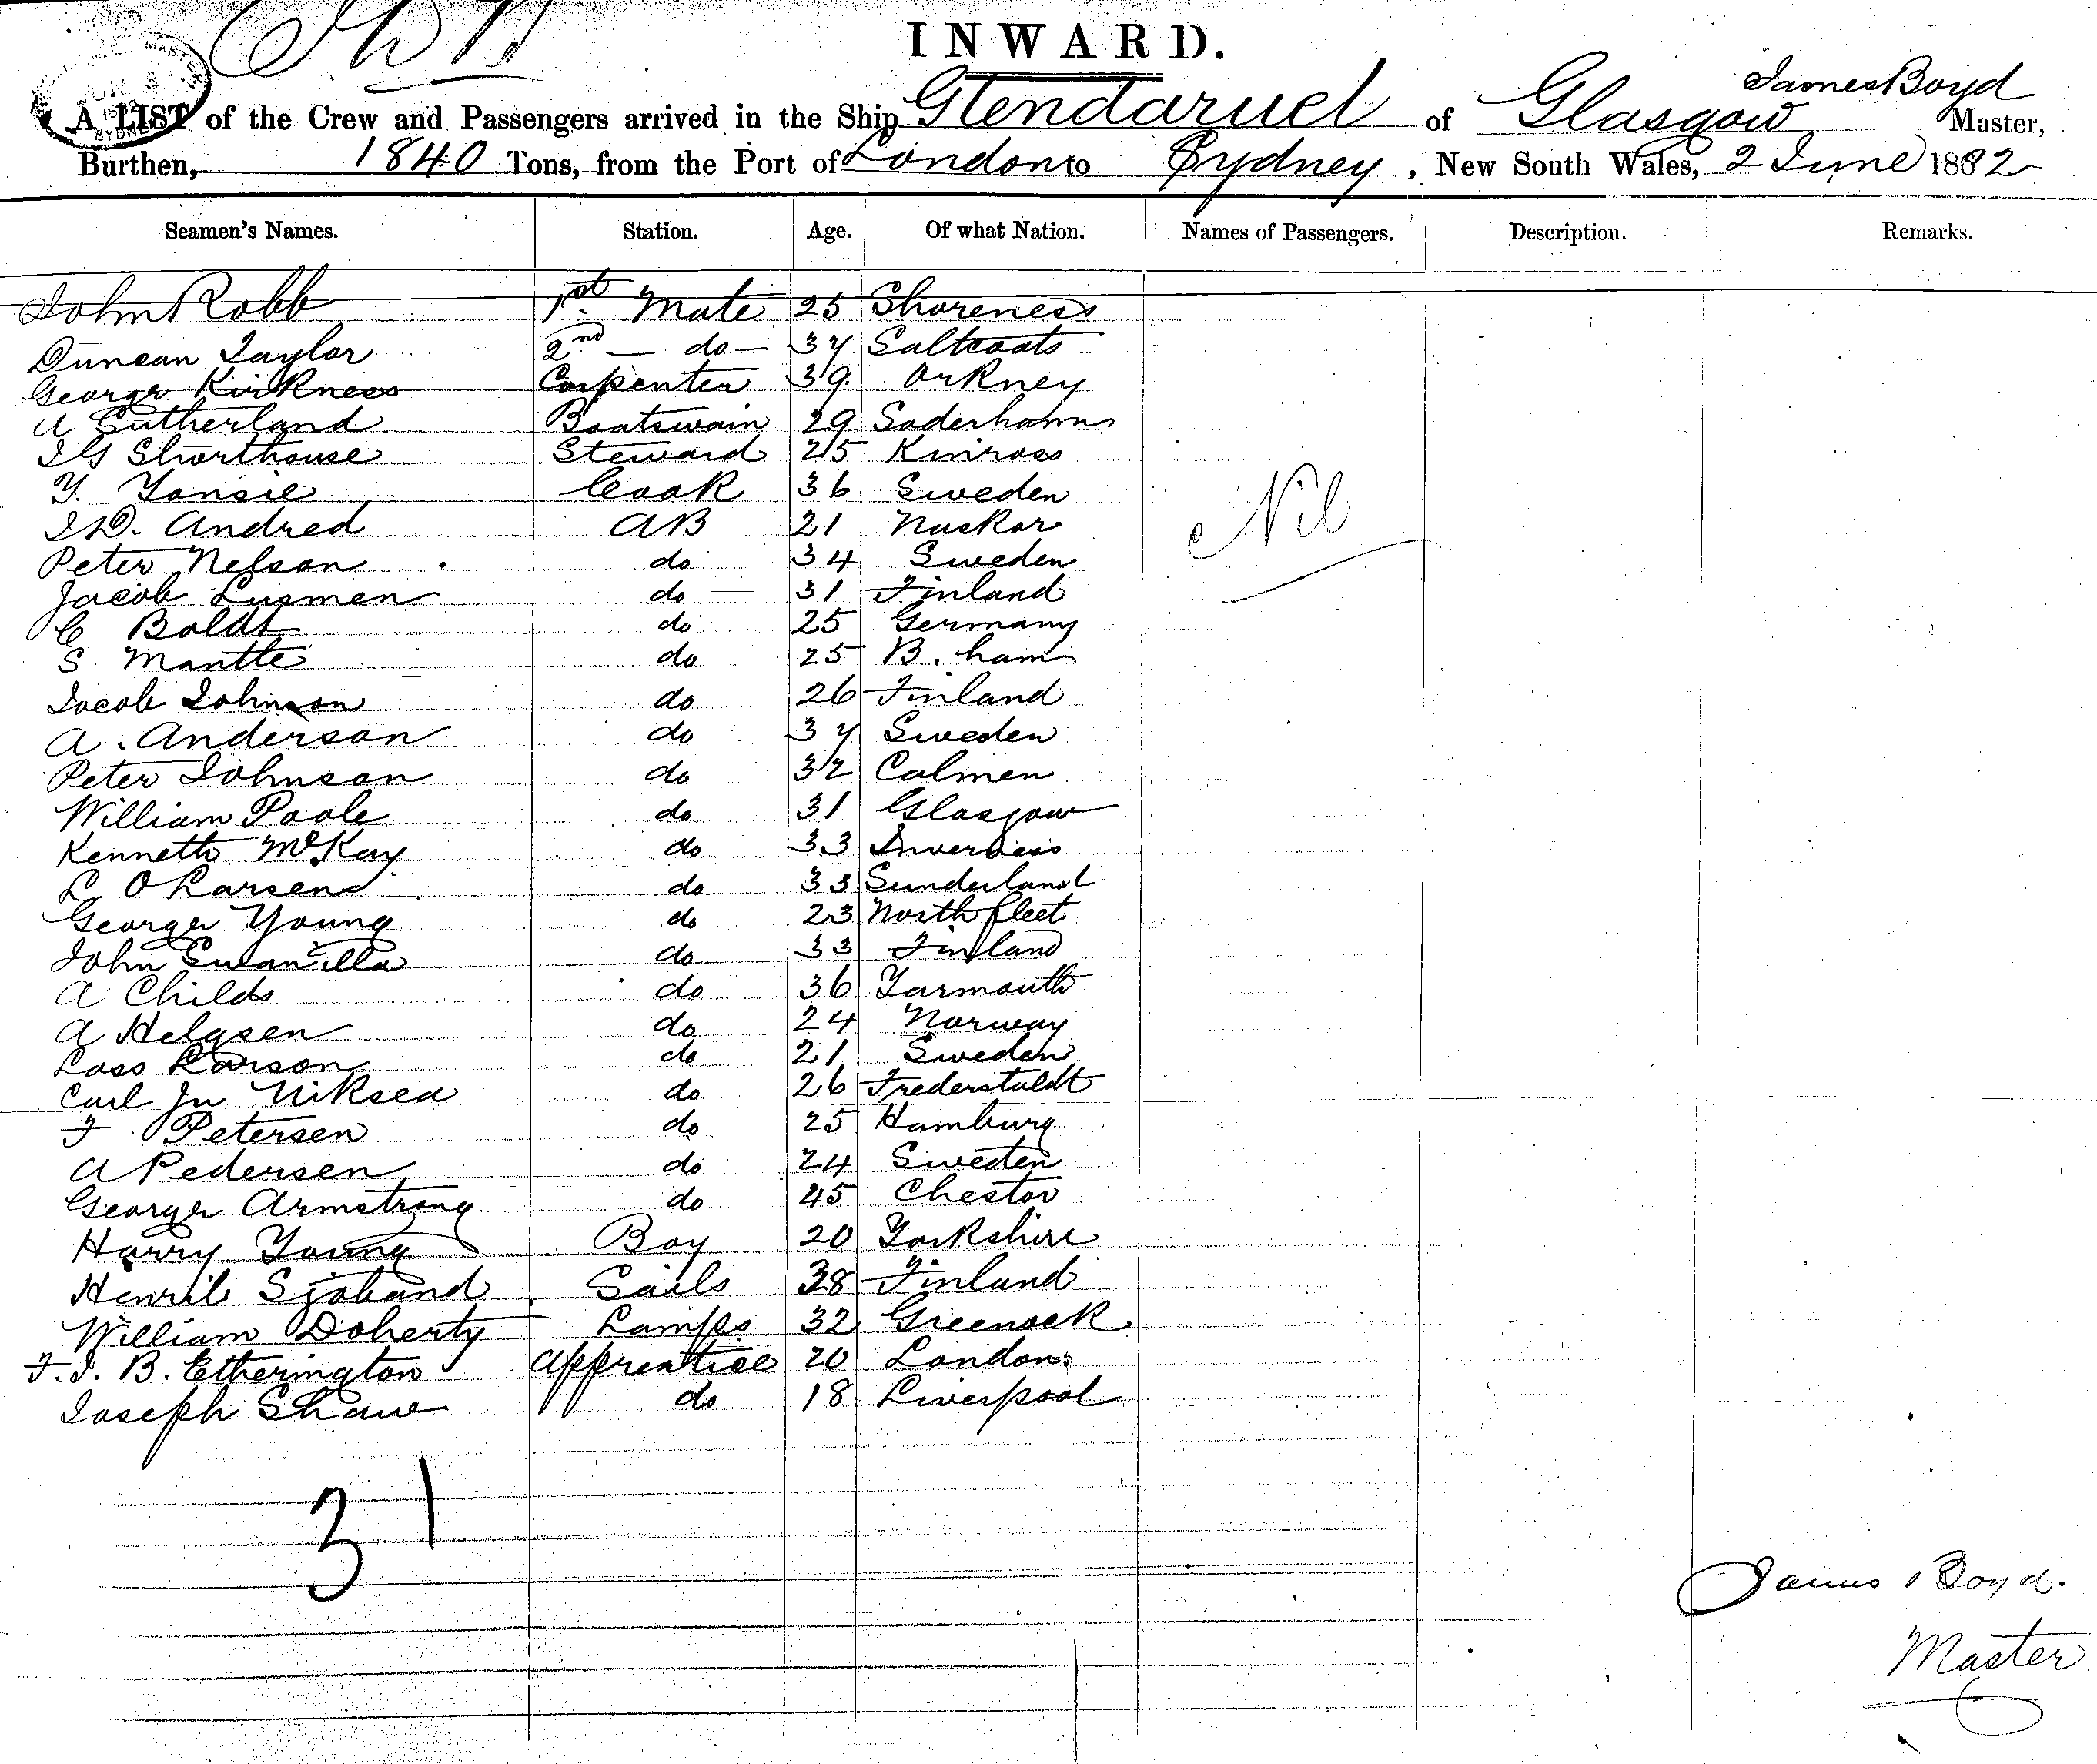 INWARD.
A LIST of the Crew and Passengers arrived in the Ship Glendaruel of Glasgow James Boyd Master,
Burthen, 1840 Tons, from the Port of London to Sydney, New South Wales, 2 June 1882
Seamen's Names. Station. Age. Of what Nation. Names of Passengers. Description. Remarks.
John Robb 1st Mate 25 Shoreness
Duncan Taylor 2nd do 37 Saltcoats
George Kirkness Carpenter 39 Orkney
A Sutherland Boatswain 29 Soderhamn
J G Shorthouse Steward 25 Kinross
Y. Yonsie Cook 36 Sweden
J D. Andred AB 21 Nuskar
Peter Nelson do 34 Sweden
Nil
Jacob Lusmen do 31 Finland
C Boldt do 25 Germany
S Mantle do 25 B. ham
Jacob Johnson do 26 Finland
A. Anderson do 37 Sweden
Peter Johnson do 32 Calmen
William Poole do 31 Glasgow
Kenneth McKay do 33 Inverness
L O Larsen do 33 Sunderland
George Young do 23 Northfleet
John do 33 Finland
A Childs do 36 Yarmouth
A Helgsen do 24 Norway
Lass Larson do 21 Sweden
Carl Jn Niksea do 26 Frederstaldt
F Petersen do 25 Hamburg
A Pedersen do 24 Sweden
George Armstrong do 45 Chester
Harry Young Boy 20 Yorkshire
Henrik Sjoband Sails 38 Finland
William Doherty Lamps 32 Greenock
F. J. B. Etherington Apprentice 20 London
Joseph Shaw do 18 Liverpool
31
James Boyd.
Master